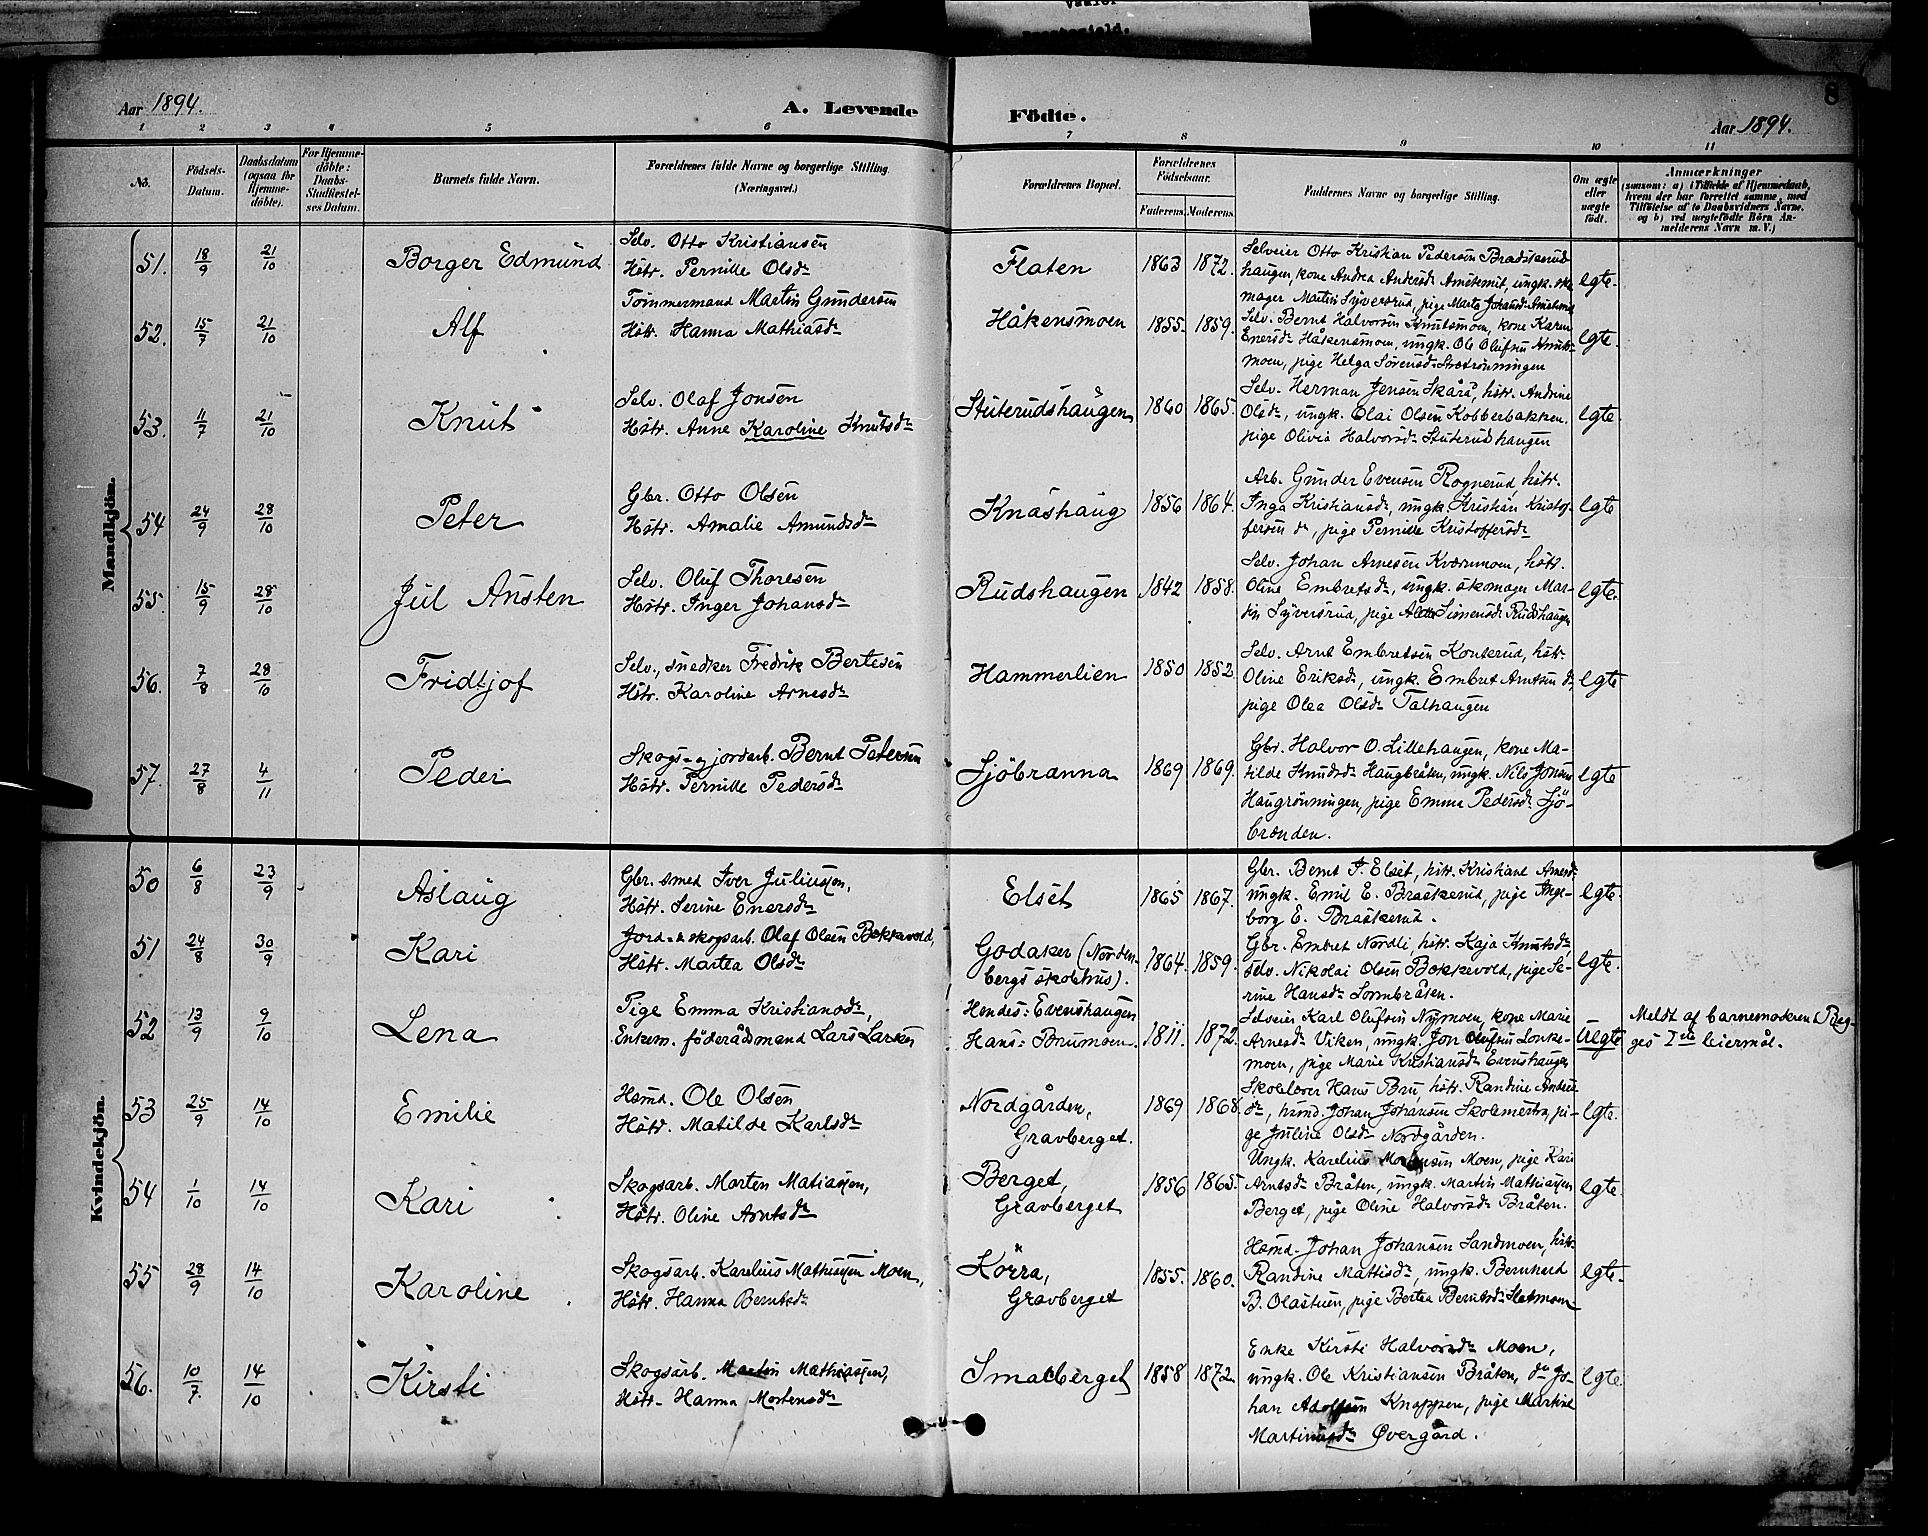 Vaaler
præstegjeld.
8
Aar 1894.
A. Levende Födte.
Aar 1894.
1 2 3 4 5 6 7 8 9 10 11
No.
Födsels-
Datum.
Daabsdatum
(ogsaa for
Hjemme-
döbte).
For Hjemme-
döbte:
Daabs-
Stadfæstel-
ses Datum.
Barnets fulde Navn.
Forældrenes fulde Navne og borgerlige Stilling.
(Næringsvei.)
Forældrenes Bopæl.
Forældrenes
Födselsaar.
Faderens. Moderens.
Faddernes Navne og borgerlige Stilling.
Om ægte
eller
uægte
födt.
Anmærkninger
(saasom: a) i Tilfælde af Hjemmedaab,
hvem der har forrettet samme, med
Tilföielse af to Daabsvidners Navne,
og b) ved uægtefödte Börn An-
melderens Navn m. V.)
Mandkjön.
51. 18/9 21/10 Borger Edmund
Selv. Otto Kristiansen
Hstr. Pernille Olsdr
Flaten 1863 1872.
Selveier Otto Kristian Pedersen
haugen, kone Andrea Andersdr ungk. sko
mager Martin Syversrud, pige Marta Johansdr
egte.
52. 15/7 21/10 Alf
Tømmermand Martin Gundersen
Hstr. Hanna Mathiasdr
Håkensmoen 1855. 1859.
Selv. Bernt Halvorsen Knutsmoen, kone Karen
Enersdr Håkensmoen, ungk. Ole Olufsen Knuts-
moen, pige Helga Sörensdr
egte.
53. 11/7 21/10 Knut
Selv. Olaf Jonsen
Hstr. Anne Karoline Knutsdr
Stuterudshaugen 1860 1865.
Selv. Herman Jensen Skåra, hstr. Andrine
Olsdr, ungk. Olai Olsen Kobberbakken.
pige Olivia Halvorsdr Stuterudhaugen
egte.
54 24/9 28/10 Peter
Gbr. Otto Olsen
Hstr. Amalie Amundsdr
Knashaug 1856 1864.
Arb. Gunder Evensen Rognerud, hstr.
Inga Kristiansdr, ungk. Kristian Kristof-
fersen do, pige Pernille Kristoffersdr
egte
55. 15/9 28/10 Jul Austen
Selv. Oluf Thoresen
Hstr. Inger Johansdr
Rudshaugen 1842 1858.
Selv. Johan Arnesen Kværnmoen, hstr.
Oline Embretsdr, ungk. skomager Mar-
tin Syversrud, pige Simensdr Rudshaugen
egte.
56. 7/8 28/10 Fridtjof
Selv., snedker Fredrik Bertesen
Hstr. Karoline Arnesdr
Hammerlien 1850 1852
Selv. Arnt Embretsen Konterud, hstr.
Oline Eriksdr, ungk. Embret Arntsen do,
pige Olea Olsdr Talhaugen
egte
57. 27/8 4/11 Peder
Skogs- og jordarb. Bernt Petersen
Hstr. Pernille Pedersdr
Sjöbranna 1869 1869.
Gbr. Halvor O. Lillehaugen, kone Ma-
tilde Knudsdr Haugbråten, ungk. Nils Jonsen
Haugrönningen, pige Emma Pedersdr Sjö-
brænden.
egte
Kvindekjön.
50 6/8 23/9 Aslaug
Gbr. smed Iver Juliussen,
Hstr. Serine Enersdr
Elset 1865 1867.
Gbr. Bernt J. Elset, hstr. Kristiane Arnesdr
ungk. Emil E. Braskerud, pige Inge-
borg E. Braskerud.
egte.
51 24/8 30/9 Kari
Jord- & skogsarb. Olaf Olsen Bekkevold,
Hstr. Martea Olsdr
Godaker (Norden-
bergs skolehus). 1864. 1859.
Gbr. Embret Nordli, hstr. Kaja Knutsdr
selv. Nikolai Olsen Bekkevold, pige Se-
rine Hansdr Sormbråten.
egte.
52 13/9 9/10 Lena
Pige Emma Kristiansdr,
Enkem. föderådmand Lars Larsen
Hendes: Evenshaugen
Hans: Brumoen. 1811. 1872.
Selveier Karl Olufsen Nymoen, kone Marie
Arnesdr Viken, ungk. Jon Olufsen Lonke-
moen, pige Marie Kristiansdr Evenshaugen
Uegte
Meldt af barnemoderen. Beg-
ges 1ste leiermål.
53 25/9 14/10 Emilie
Hsmd. Ole Olsen
Hstr. Matilde Karlsdr
Nordgården,
Gravberget. 1869 1868.
Skolelærer Hans Bru, hstr. Randine Anders-
dr, hsmd. Johan Johansen Skolemestra, pi-
ge Juline Olsdr Nordgården.
egte.
54 1/10 14/10 Kari
Skogsarb. Morten Matiassen,
Hstr. Oline Arntsdr
Berget,
Gravberget 1856 1865.
Ungk. Karelius Mortensen Moen, pige Kari
Arntsdr Bråten, ungk. Martin Mathiassen
Berget, pige Oline Halvorsdr Bråten.
egte.
55 28/9 14/10 Karoline
Skogsarb. Karelius Mathiassen Moen,
Hstr. Hanna Berntsdr
Körra,
Gravberget 1855. 1860.
Hsmd. Johan Johansen Sandmoen, hstr.
Randine Mattisdr, ungk. Bernhard
B. Olastuen, pige Bertea Berntsdr Sletmoen
egte.
56. 10/7. 14/10 Kirsti
Skogsarb. Martin Mathiassen,
Hstr. Hanna Mortensdr
Smalberget 1858 1872
Enke Kirsti Halvorsdr Moen,
ungk. Ole Kristiansen Bråten, do Jo-
han Adolfsen Knappen, pige Martine
Martinusdr Övergård.
egte.